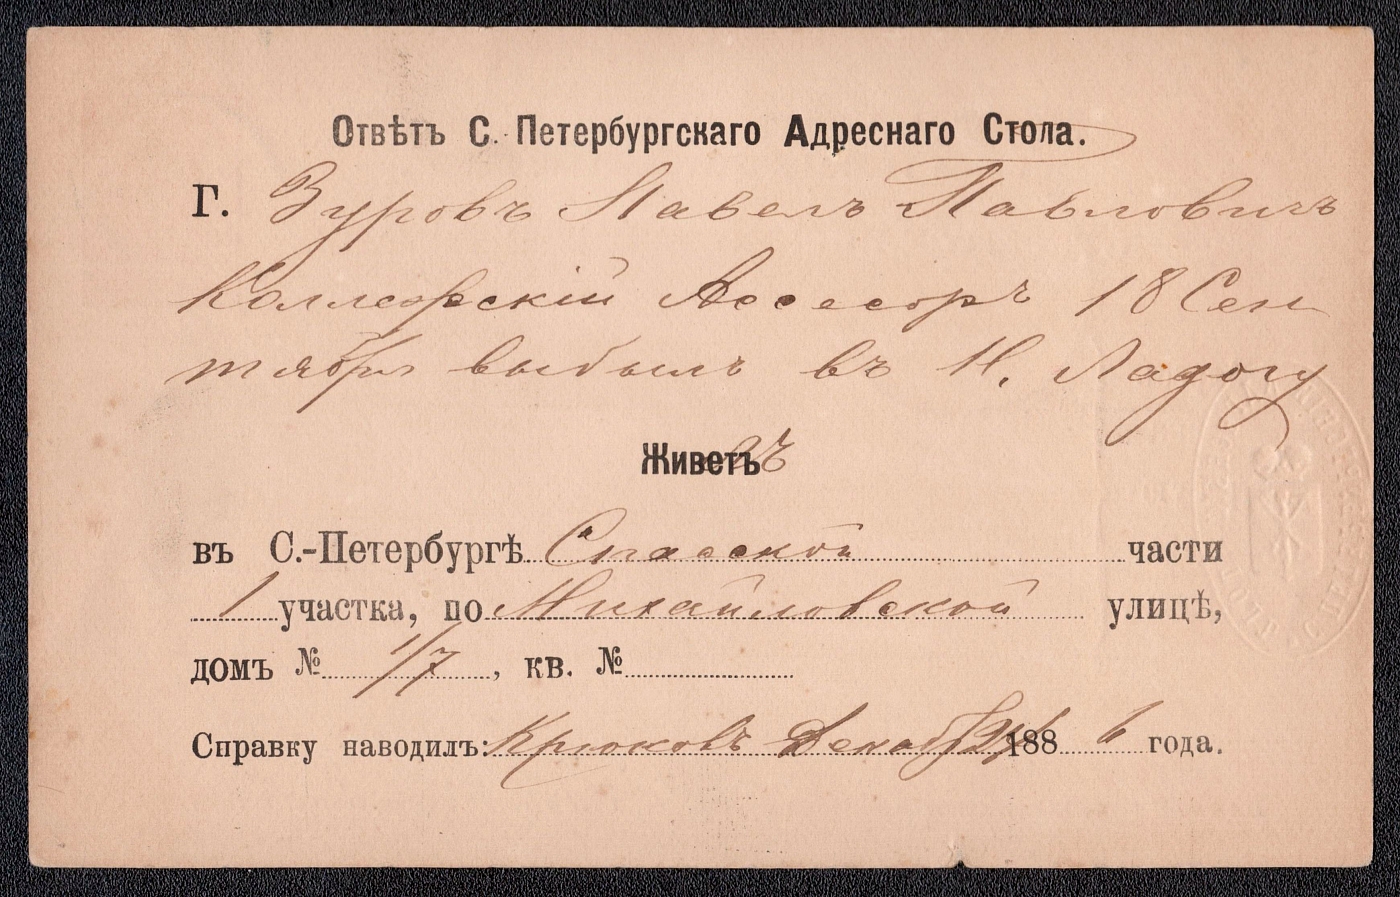 Отвѣтъ С. Петербургскаго Адреснаго Стола.
Г. Зуровъ Павелъ Павловичъ
Коллежскій Ассесоръ 18 Сен
тября выбылъ въ Н. Ладогу
Живетъ
въ С.-Петербургѣ Спасской части
1 участка, по Михайловской улицѣ,
домъ № 1/7, кв. №
Справку наводилъ: Крюковъ Декабр 1886 года.